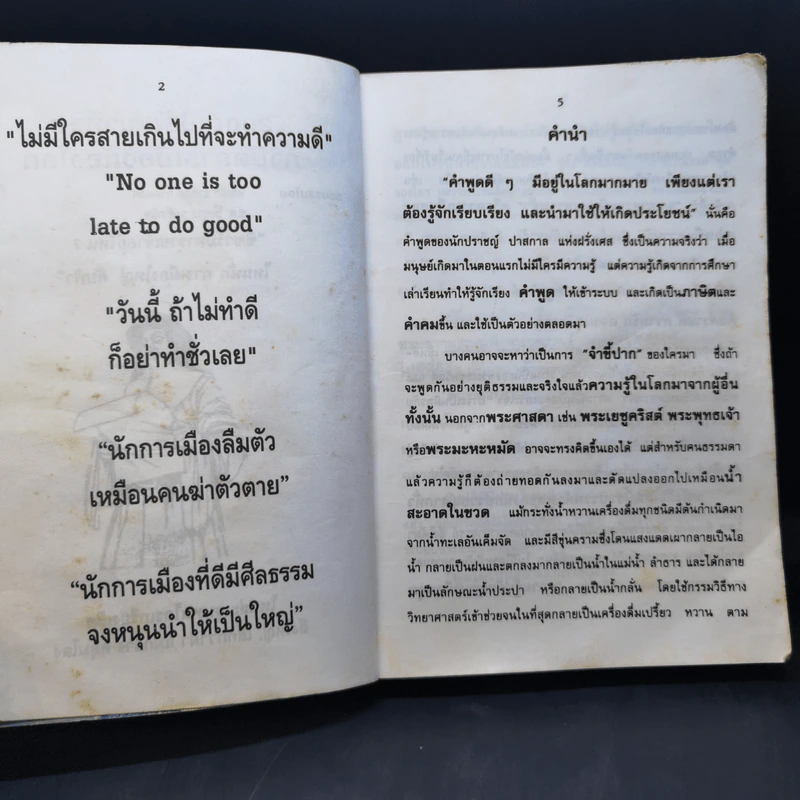 2
"ไม่มีใครสายเกินไปที่จะทำความดี"
"No one is too
late to do good"
"วันนี้ ถ้าไม่ทำดี
ก็อย่าทำชั่วเลย"
“นักการเมืองลืมตัว
เหมือนคนฆ่าตัวตาย”
“นักการเมืองที่ดีมีศีลธรรม
จงหนุนนำให้เป็นใหญ่”
5
คำนำ
“คำพูดดี ๆ มีอยู่ในโลกมากมาย เพียงแต่เรา
ต้องรู้จักเรียบเรียง และนำมาใช้ให้เกิดประโยชน์” นั้นคือ
คำพูดของนักปราชญ์ ปาสกาล แห่งฝรั่งเศส ซึ่งเป็นความจริงว่า เมื่อ
มนุษย์เกิดมาในตอนแรกไม่มีใครมีความรู้ แต่ความรู้เกิดจากการศึกษา
เล่าเรียนทำให้รู้จักเรียง คำพูด ให้เข้าระบบ และเกิดเป็นภาษิตและ
คำคมขึ้น และใช้เป็นตัวอย่างตลอดมา
บางคนอาจจะหาว่าเป็นการ “จำขี้ปาก” ของใครมา ซึ่งถ้า
จะพูดกันอย่างยุติธรรมและจริงใจแล้วความรู้ในโลกมาจากผู้อื่น
ทั้งนั้น นอกจากพระศาสดา เช่น พระเยซูคริสต์ พระพุทธเจ้า
หรือพระมะหะหมัด อาจจะทรงคิดขึ้นเองได้ แต่สำหรับคนธรรมดา
แล้วความรู้ก็ต้องถ่ายทอดกันลงมาและดัดแปลงออกไปเหมือนน้ำ
สะอาดในขวด แม้กระทั่งน้ำหวานเครื่องดื่มทุกชนิดมีต้นกำเนิดมา
จากน้ำทะเลอันเค็มจัด และมีสีขุ่นครามซึ่งโดนแสงแดดเผากลายเป็นไอ
น้ำ กลายเป็นฝนและตกลงมากลายเป็นน้ำในแม่น้ำ ลำธาร และได้กลาย
มาเป็นลักษณะน้ำประปา หรือกลายเป็นน้ำกลั่น โดยใช้กรรมวิธีทาง
วิทยาศาสตร์เข้าช่วยจนในที่สุดกลายเป็นเครื่องดื่มเปรี้ยว หวาน ตาม